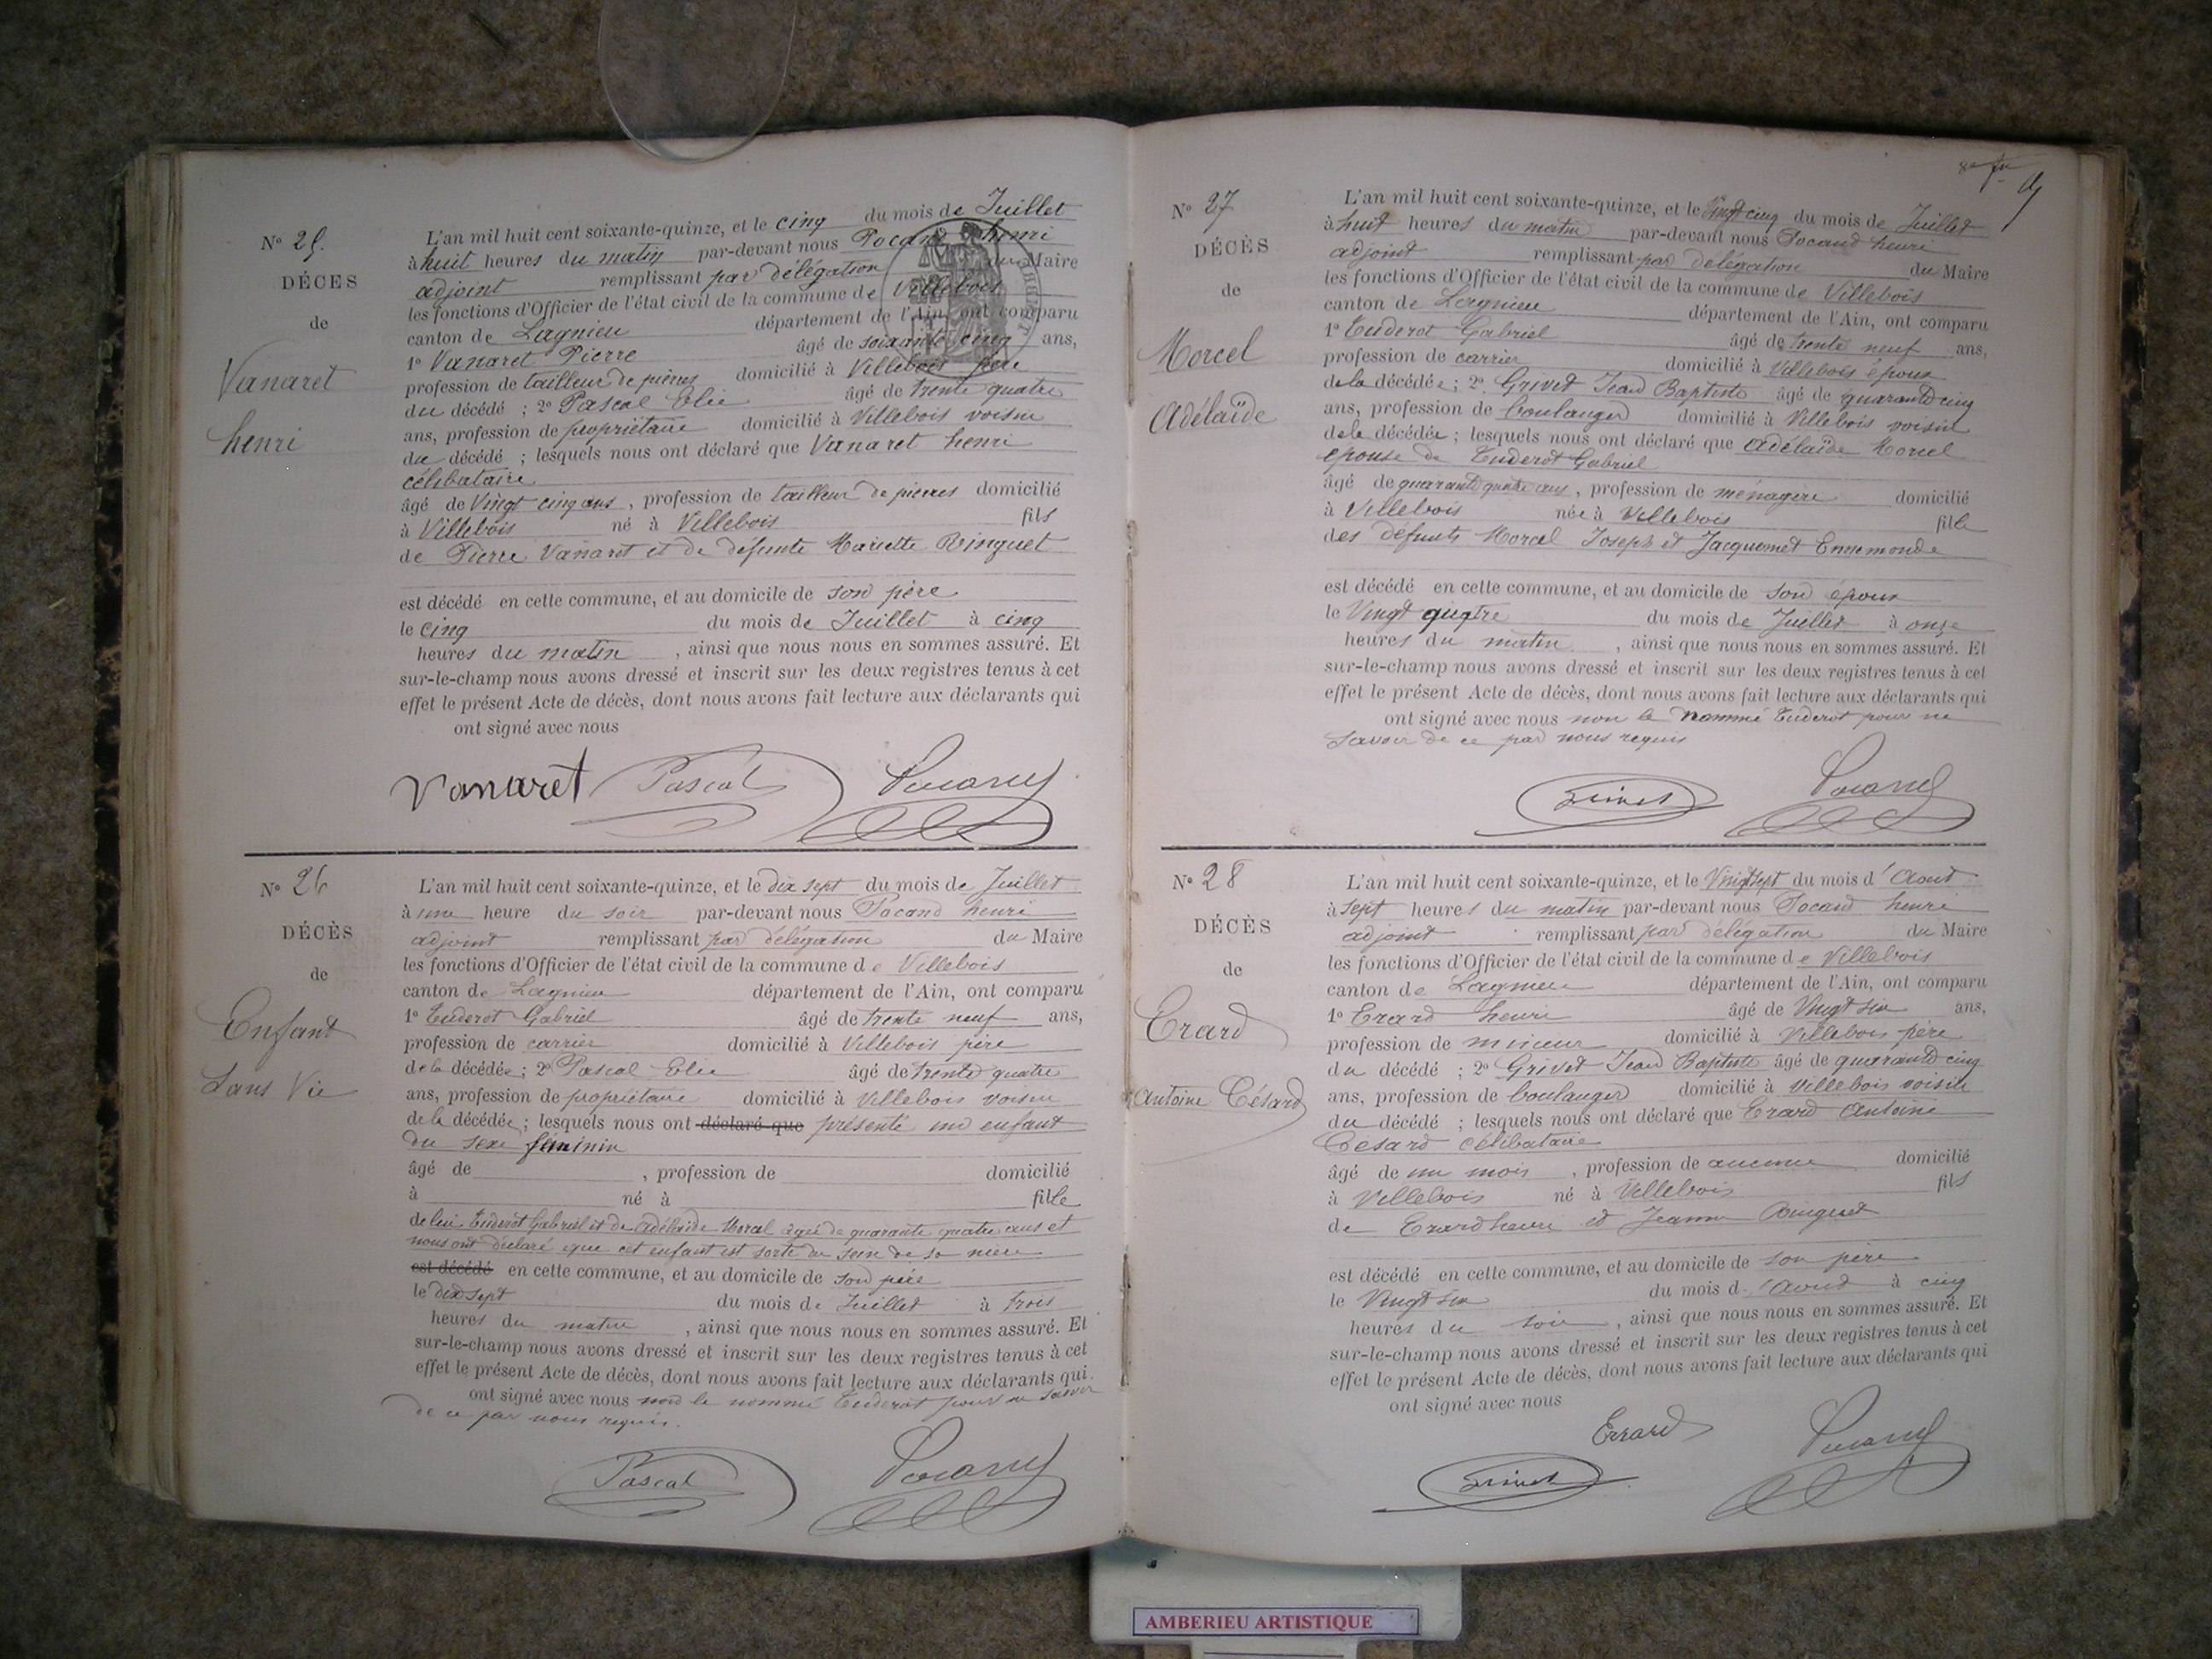 N° 25.
DÉCES
de
Vanaret
henri
L'an mil huit cent soixante-quinze, et le cinq du mois de Juillet
à huit heures du matin par-devant nous Pocand henri
adjoint remplissant par délégation du Maire
les fonctions d'Officier de l'état civil de la commune de Villebois
canton de Lagnieu département de l'Ain, ont comparu
1° Vanaret Pierre âgé de soixante cinq ans,
profession de tailleur de pierres domicilié à Villebois père
du décédé ; 2° Pascal Elie âgé de trente quatre
ans, profession de propriétaire domicilié à Villebois voisin
du décédé ; lesquels nous ont déclaré que Vanaret henri
célibataire
âgé de Vingt cinq ans , profession de tailleur de pierres domicilié
à Villebois né à Villebois fils
de Pierre Vanaret et de défunte Mariette Ringuet
est décédé en cette commune, et au domicile de son père
le cinq du mois de Juillet à cinq
heures du matin , ainsi que nous nous en sommes assuré. Et
sur-le-champ nous avons dressé et inscrit sur les deux registres tenus à cet
effet le présent Acte de décès, dont nous avons fait lecture aux déclarants qui
ont signé avec nous
Vanaret Pascal Pocand
N° 26
DÉCÈS
de
Enfant
Sans Vie
L'an mil huit cent soixante-quinze, et le dix sept du mois de Juillet
à une heure du soir par-devant nous Pocand henri
adjoint remplissant par délégation du Maire
les fonctions d'Officier de l'état civil de la commune de Villebois
canton de Lagnieu département de l'Ain, ont comparu
1° Tuderot Gabriel âgé de trente neuf ans,
profession de carrier domicilié à Villebois père
de la décédée ; 2° Pascal Elie âgé de trente quatre
ans, profession de propriétaire domicilié à Villebois voisin
de la décédée ; lesquels nous ont déclaré que présenté un enfant
du sexe féminin
âgé de , profession de domicilié
à né à fille
de lui Tuderot Gabriel et de Adélaïde Morcel âgée de quarante quatre ans et
nous ont déclaré que cet enfant est sorti du sein de sa mère
est décédé en cette commune, et au domicile de son père
le dix sept du mois de Juillet à trois
heures du matin , ainsi que nous nous en sommes assuré. Et
sur-le-champ nous avons dressé et inscrit sur les deux registres tenus à cet
effet le présent Acte de décès, dont nous avons fait lecture aux déclarants qui
ont signé avec nous non le nommé Tuderot pour ne savoir
de ce par nous requis.
Pascal Pocand
N° 27
DÉCÈS
de
Morcel
Adélaïde
L'an mil huit cent soixante-quinze, et le Vingt cinq du mois de Juillet
à huit heures du matin par-devant nous Pocand henri
adjoint remplissant par délégation du Maire
les fonctions d'Officier de l'état civil de la commune de Villebois
canton de Lagnieu département de l'Ain, ont comparu
1° Tuderot Gabriel âgé de trente neuf ans,
profession de carrier domicilié à Villebois époux
de la décédée ; 2° Grivet Jean Baptiste âgé de quarante cinq
ans, profession de boulanger domicilié à Villebois voisin
de la décédée ; lesquels nous ont déclaré que Adélaïde Morcel
épouse de Tuderot Gabriel
âgé de quarante quatre ans , profession de ménagère domicilié
à Villebois née à Villebois fille
des défunts Morcel Joseph et Jacquemet Ennemonde
est décédé en cette commune, et au domicile de son époux
le Vingt quatre du mois de Juillet à onze
heures du matin , ainsi que nous nous en sommes assuré. Et
sur-le-champ nous avons dressé et inscrit sur les deux registres tenus à cet
effet le présent Acte de décès, dont nous avons fait lecture aux déclarants qui
ont signé avec nous non le nommé Tuderot pour ne
savoir de ce par nous requis
Grivet Pocand
N° 28
DÉCÈS
de
Erard
Antoine Césard
L'an mil huit cent soixante-quinze, et le Vingt sept du mois d'Aout
à sept heures du matin par-devant nous Pocand henri
adjoint remplissant par délégation du Maire
les fonctions d'Officier de l'état civil de la commune de Villebois
canton de Lagnieu département de l'Ain, ont comparu
1° Erard henri âgé de Vingt six ans,
profession de mineur domicilié à Villebois père
du décédé ; 2° Grivet Jean Baptiste âgé de quarante cinq
ans, profession de boulanger domicilié à Villebois voisin
du décédé ; lesquels nous ont déclaré que Erard Antoine
Césard célibataire
âgé de un mois , profession de aucune domicilié
à Villebois né à Villebois fils
de Erard henri et Jeanne Ringuet
est décédé en cette commune, et au domicile de son père
le Vingt six du mois d'Aout à cinq
heures du soir , ainsi que nous nous en sommes assuré. Et
sur-le-champ nous avons dressé et inscrit sur les deux registres tenus à cet
effet le présent Acte de décès, dont nous avons fait lecture aux déclarants qui
ont signé avec nous
Errard
Grivet Pocand
AMBERIEU ARTISTIQUE